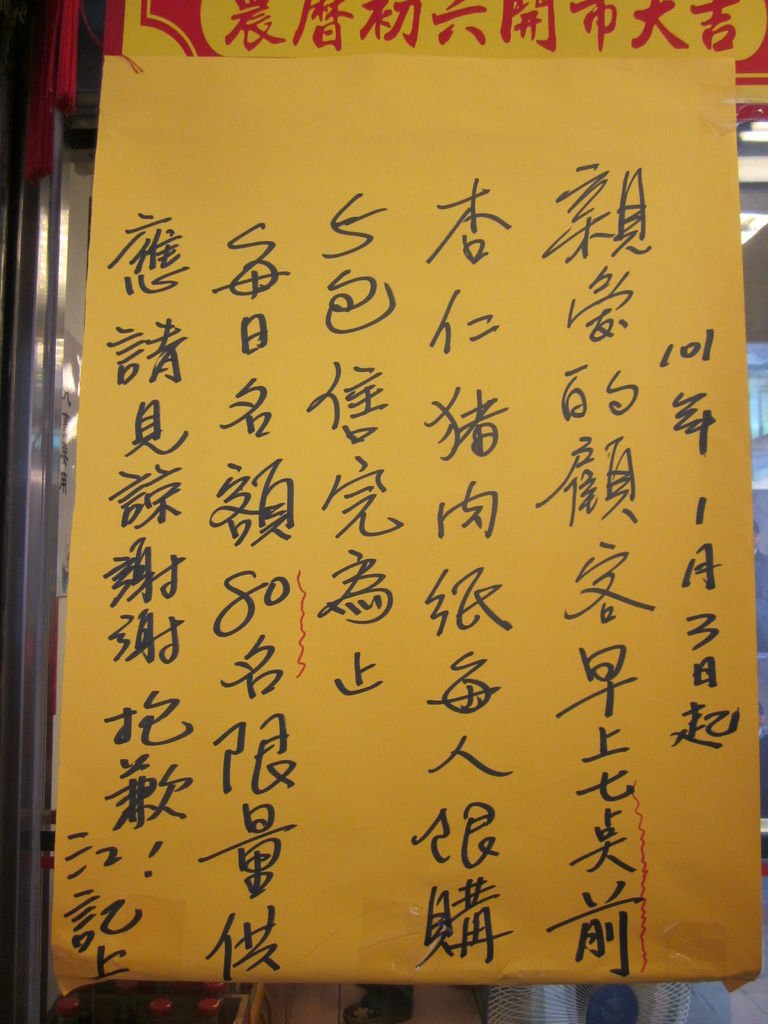 農曆初六開市大吉
101年1月3日起
親愛的顧客早上七点前
杏仁猪肉紙每人限購
5包售完為止
每日名額80名限量供
應請見諒謝謝抱歉!
江記上